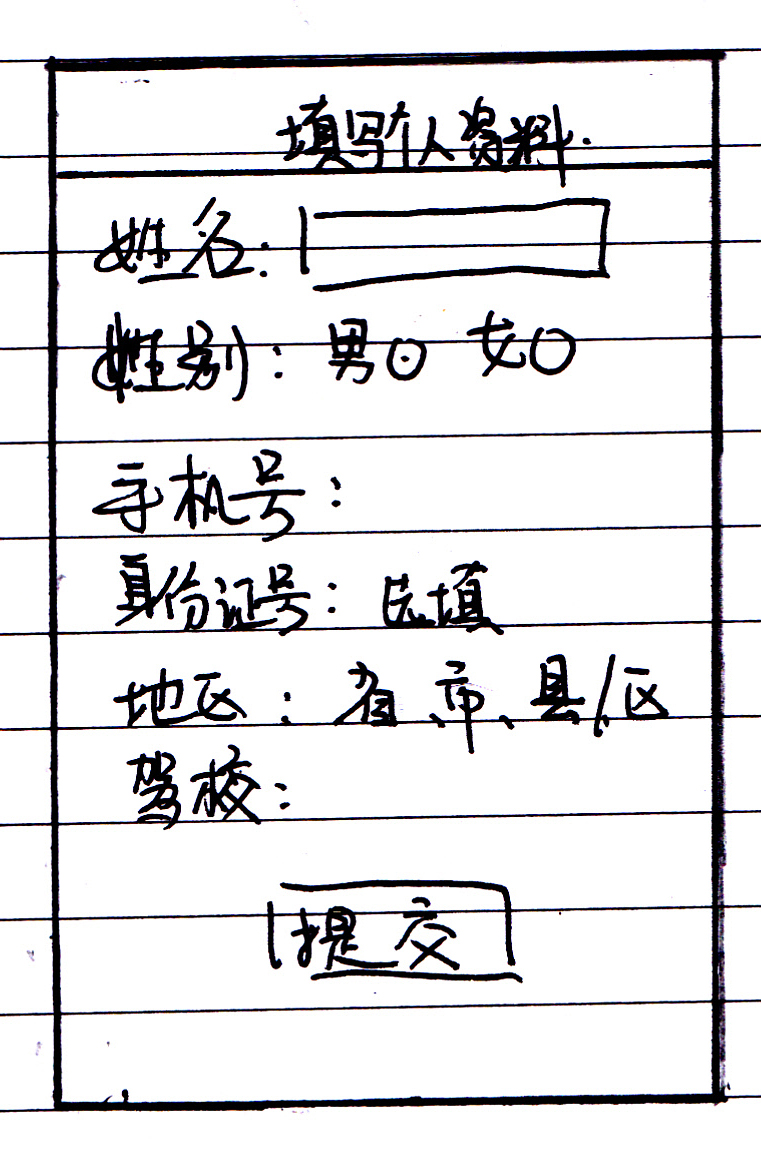 填写个人资料
姓名:
姓别: 男 女
手机号:
身份证号: 必填
地区: 省、市、县/区
驾校:
提交